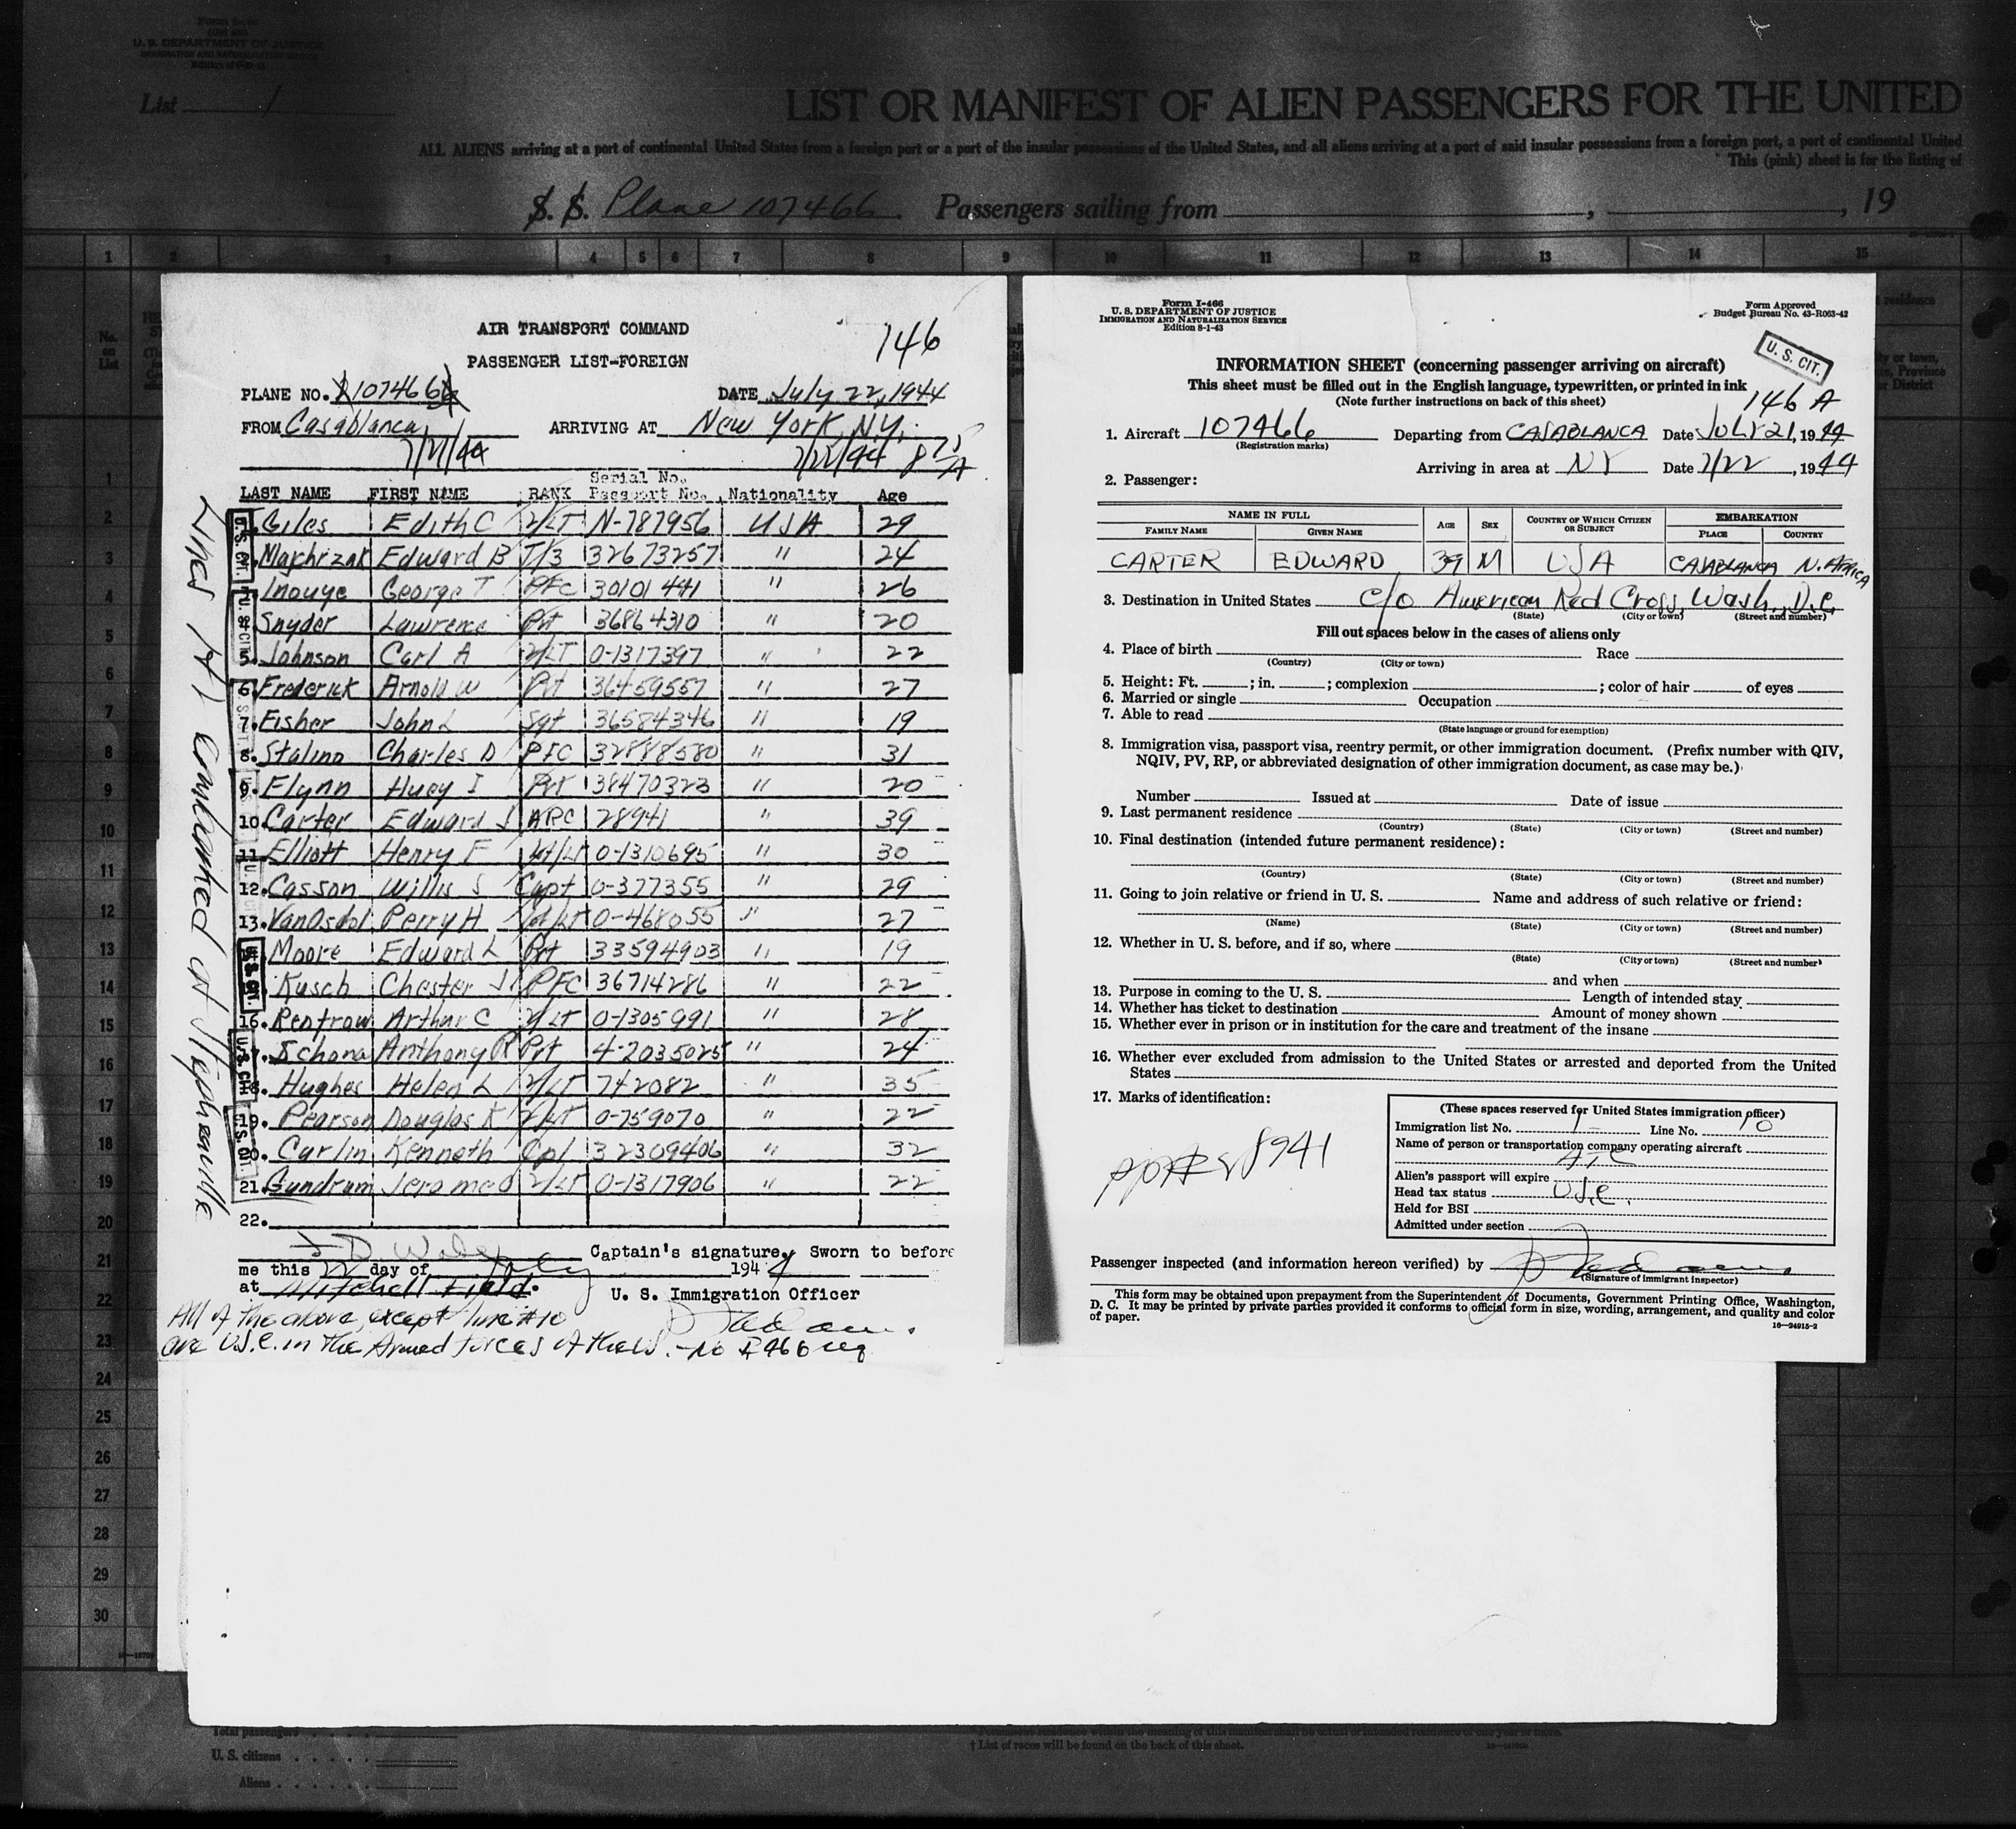 Form I-466
U. S. DEPARTMENT OF JUSTICE
IMMIGRATION AND NATURALIZATION SERVICE
List 1
LIST OR MANIFEST OF ALIEN PASSENGERS FOR THE UNITED
ALL ALIENS arriving at a port of continental United States from a foreign port or a port of the insular possessions of the United States, and all aliens arriving at a port of said insular possessions from a foreign port, a port of continental United
This (pink) sheet is for the listing of
S. S. Plane 107466 Passengers sailing from , , 19
1 2 3 4 5 6 7 8 9 10 11 12 13 14 15
No. on List
AIR TRANSPORT COMMAND
146
PASSENGER LIST-FOREIGN
PLANE NO. 107466 DATE July 22, 1944
FROM Casablanca ARRIVING AT New York, N.Y.
7/21/44 7/22/44 875 A
LAST NAME FIRST NAME RANK Serial No. Passport No. Nationality Age
1. Giles Edith C 2/LT N-787956 USA 29
Majchrzak Edward B T/3 32673257 " 24
Inouye George T PFC 30101441 " 26
Snyder Lawrence Pvt 36864310 " 20
5. Johnson Carl A 2/LT O-1317397 " 22
6. Frederick Arnold W Pvt 36459557 " 27
7. Fisher John L Sgt 36584346 " 19
8. Stalino Charles D PFC 32888580 " 31
9. Flynn Huey I Pvt 38470323 " 20
10. Carter Edward J ARC 28941 " 39
11. Elliott Henry F 1st/Lt O-1310695 " 30
12. Casson Willis S Capt O-377355 " 29
13. VanOsdol Perry H 1st/Lt O-468055 " 27
Moore Edward L Pvt 33594903 " 19
Kusch Chester J PFC 36714286 " 22
16. Rentrow Arthur C 2/LT O-1305991 " 28
Schona Anthony R Pvt 4-2035025 " 24
18. Hughes Helen L 2/LT 742082 " 35
19. Pearson Douglas K 2/LT O-759070 " 22
20. Carlin Kenneth Cpl 32309406 " 32
21. Gundrum Jerome O 2/LT O-1317906 " 22
22.
Captain's signature. Sworn to before
me this 22 day of July 1944
at Mitchell Field.
U. S. Immigration Officer
All of the above, except line #10
are U.S.C. in the Armed forces of the U.S. - No I 466 req
embarked at Stephenville
Form I-466
U. S. DEPARTMENT OF JUSTICE
IMMIGRATION AND NATURALIZATION SERVICE
Edition 8-1-43
Form Approved
Budget Bureau No. 43-R063-42
U. S. CIT.
INFORMATION SHEET (concerning passenger arriving on aircraft)
This sheet must be filled out in the English language, typewritten, or printed in ink
(Note further instructions on back of this sheet)
146 A
1. Aircraft 107466 Departing from CASABLANCA Date JULY 21, 1944
(Registration marks)
Arriving in area at NY Date 7/22, 1944
2. Passenger:
NAME IN FULL AGE SEX COUNTRY OF WHICH CITIZEN OR SUBJECT EMBARKATION
FAMILY NAME GIVEN NAME PLACE COUNTRY
CARTER EDWARD 39 M USA CASABLANCA N. AFRICA
3. Destination in United States c/o American Red Cross, Wash. D.C.
(State) (City or town) (Street and number)
Fill out spaces below in the cases of aliens only
4. Place of birth Race
(Country) (City or town)
5. Height: Ft. ; in. ; complexion ; color of hair of eyes
6. Married or single Occupation
7. Able to read
(State language or ground for exemption)
8. Immigration visa, passport visa, reentry permit, or other immigration document. (Prefix number with QIV,
NQIV, PV, RP, or abbreviated designation of other immigration document, as case may be.)
Number Issued at Date of issue
9. Last permanent residence
(Country) (State) (City or town) (Street and number)
10. Final destination (intended future permanent residence):
(Country) (State) (City or town) (Street and number)
11. Going to join relative or friend in U. S. Name and address of such relative or friend:
(Name) (State) (City or town) (Street and number)
12. Whether in U. S. before, and if so, where
(State) (City or town) (Street and number)
and when
13. Purpose in coming to the U. S. Length of intended stay
14. Whether has ticket to destination Amount of money shown
15. Whether ever in prison or in institution for the care and treatment of the insane
16. Whether ever excluded from admission to the United States or arrested and deported from the United
States
17. Marks of identification:
(These spaces reserved for United States immigration officer)
Immigration list No. 1 Line No. 10
Name of person or transportation company operating aircraft
ATC
Alien's passport will expire
Head tax status U.S.C.
Held for BSI
Admitted under section
Passenger inspected (and information hereon verified) by
(Signature of immigrant inspector)
This form may be obtained upon prepayment from the Superintendent of Documents, Government Printing Office, Washington,
D. C. It may be printed by private parties provided it conforms to official form in size, wording, arrangement, and quality and color
of paper.
16-34915-2
1
2
3
4
5
6
7
8
9
10
11
12
13
14
15
16
17
18
19
20
21
22
23
24
25
26
27
28
29
30
Total passengers
U. S. citizens
Aliens
† List of races will be found on the back of this sheet.